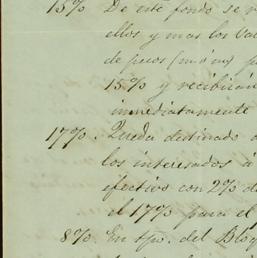 15% De este fondo se
ellos y mas los Val
de pesos (m/m) p
15% y recibirán
inmediatamente
17%. Queda destinado a
los interesados á
efectivos con 2% d
el 17% para el p
8%. En tpo. del Bloq